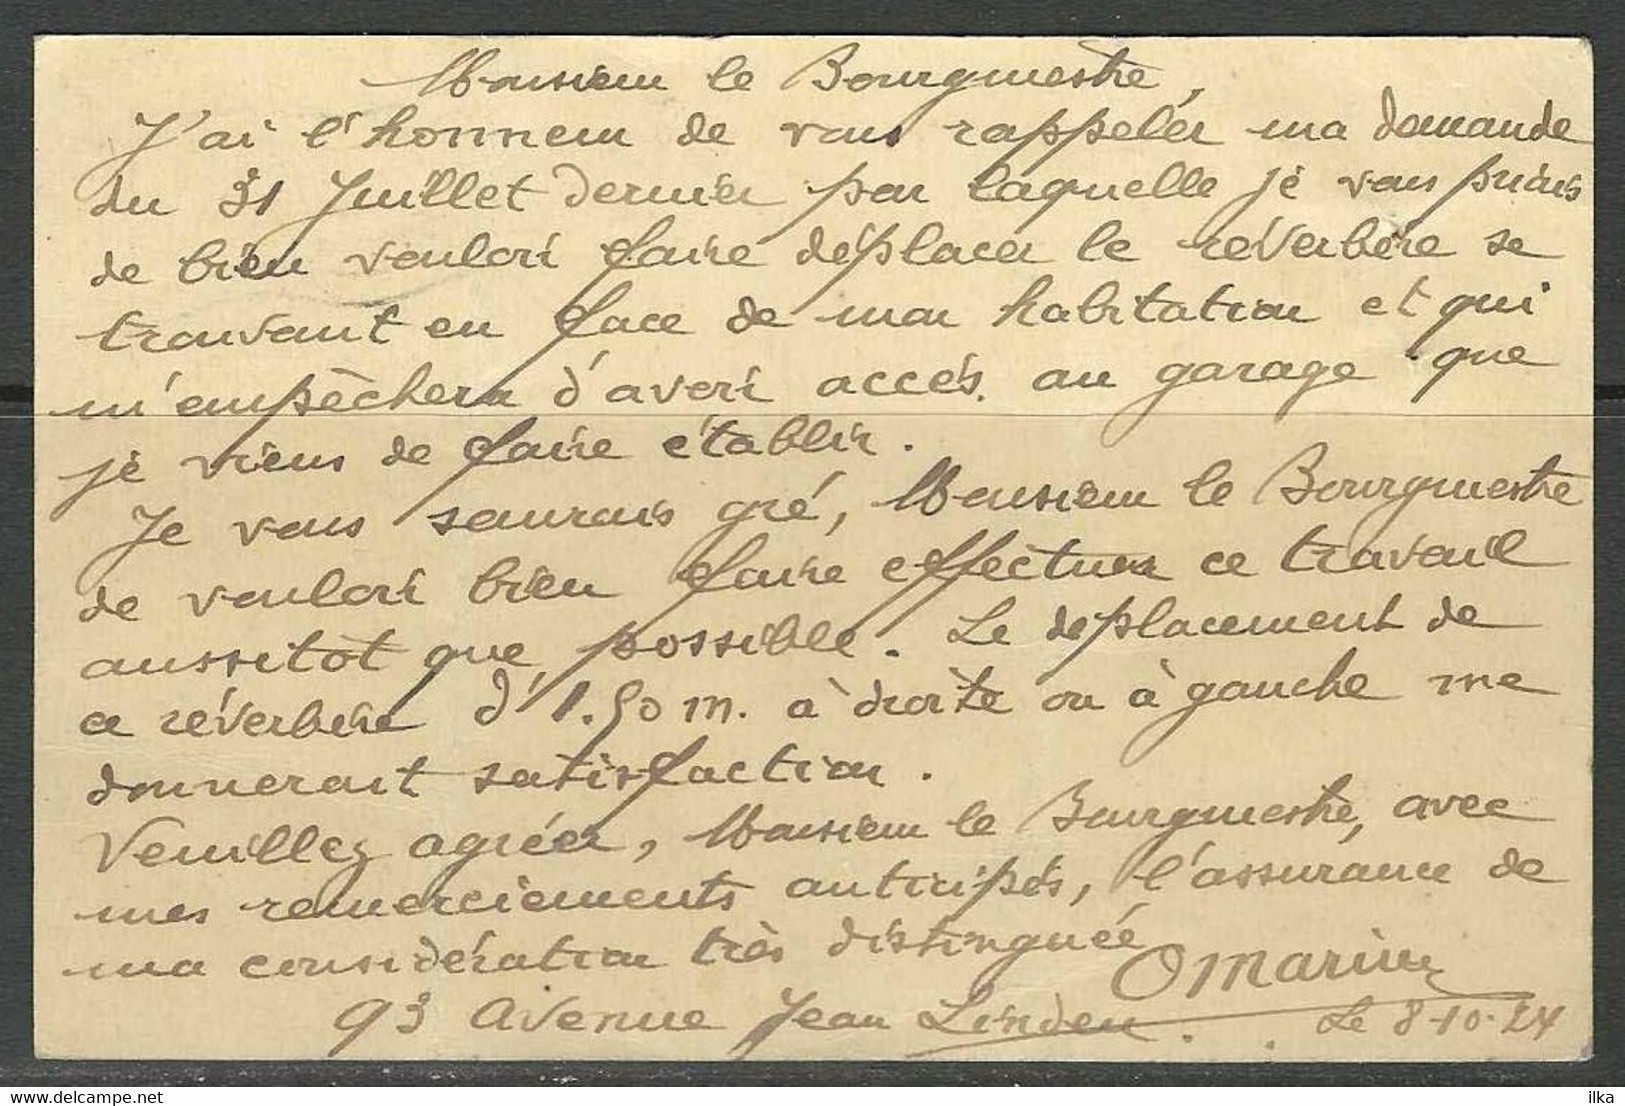 Monsieur le Bourgmestre,
J'ai l'honneur de vous rappeler ma demande
du 31 Juillet dernier par laquelle je vous priais
de bien vouloir faire déplacer le réverbère se
trouvant en face de mon habitation et qui
m'empêchera d'avoir accés au garage que
je viens de faire établir.
Je vous saurais gré, Monsieur le Bourgmestre
de vouloir bien faire effectuer ce travail
aussitôt que possible. Le déplacement de
ce réverbère d'1.50 m. à droite ou à gauche me
donnerait satisfaction.
Veuillez agréer, Monsieur le Bourgmestre, avec
mes remerciements anticipés, l'assurance de
ma considération très distinguée
OMarin
93 Avenue Jean Linden. Le 8-10-24
delcampe.net
ilka